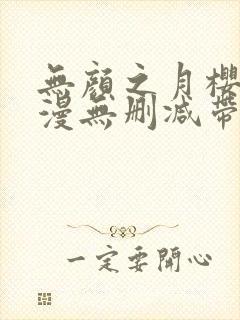 無顏之月櫻
漫無删减帶
一定要開心